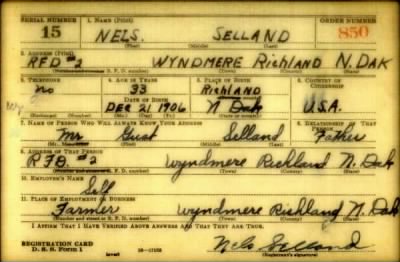 SERIAL NUMBER 1. NAME (Print) ORDER NUMBER
15 NELS. SELLAND 850
(First) (Middle) (Last)
2. ADDRESS (Print)
RFD #2 WYNDMERE Richland N. DAK
(Number and street or R. F. D. number) (Town) (County) (State)
3. TELEPHONE 4. AGE IN YEARS 5. PLACE OF BIRTH 6. COUNTRY OF CITIZENSHIP
No 33 RICHLAND
(Town or county)
DATE OF BIRTH
DEC 21 1906 N Dak U.S.A.
(Exchange) (Number) (Mo.) (Day) (Yr.) (State or country)
7. NAME OF PERSON WHO WILL ALWAYS KNOW YOUR ADDRESS 8. RELATIONSHIP OF THAT PERSON
Mr Gust Selland Father
(Mr., Mrs., Miss) (First) (Middle) (Last)
9. ADDRESS OF THAT PERSON
RFD. #2 Wyndmere Richland N. Dak
(Number and street or R. F. D. number) (Town) (County) (State)
10. EMPLOYER'S NAME
Self
11. PLACE OF EMPLOYMENT OR BUSINESS
Farmer Wyndmere Richland N. Dak
(Number and street or R. F. D. number) (Town) (County) (State)
I AFFIRM THAT I HAVE VERIFIED ABOVE ANSWERS AND THAT THEY ARE TRUE.
REGISTRATION CARD
D. S. S. Form 1 Nels Selland
(over) (Registrant's signature)